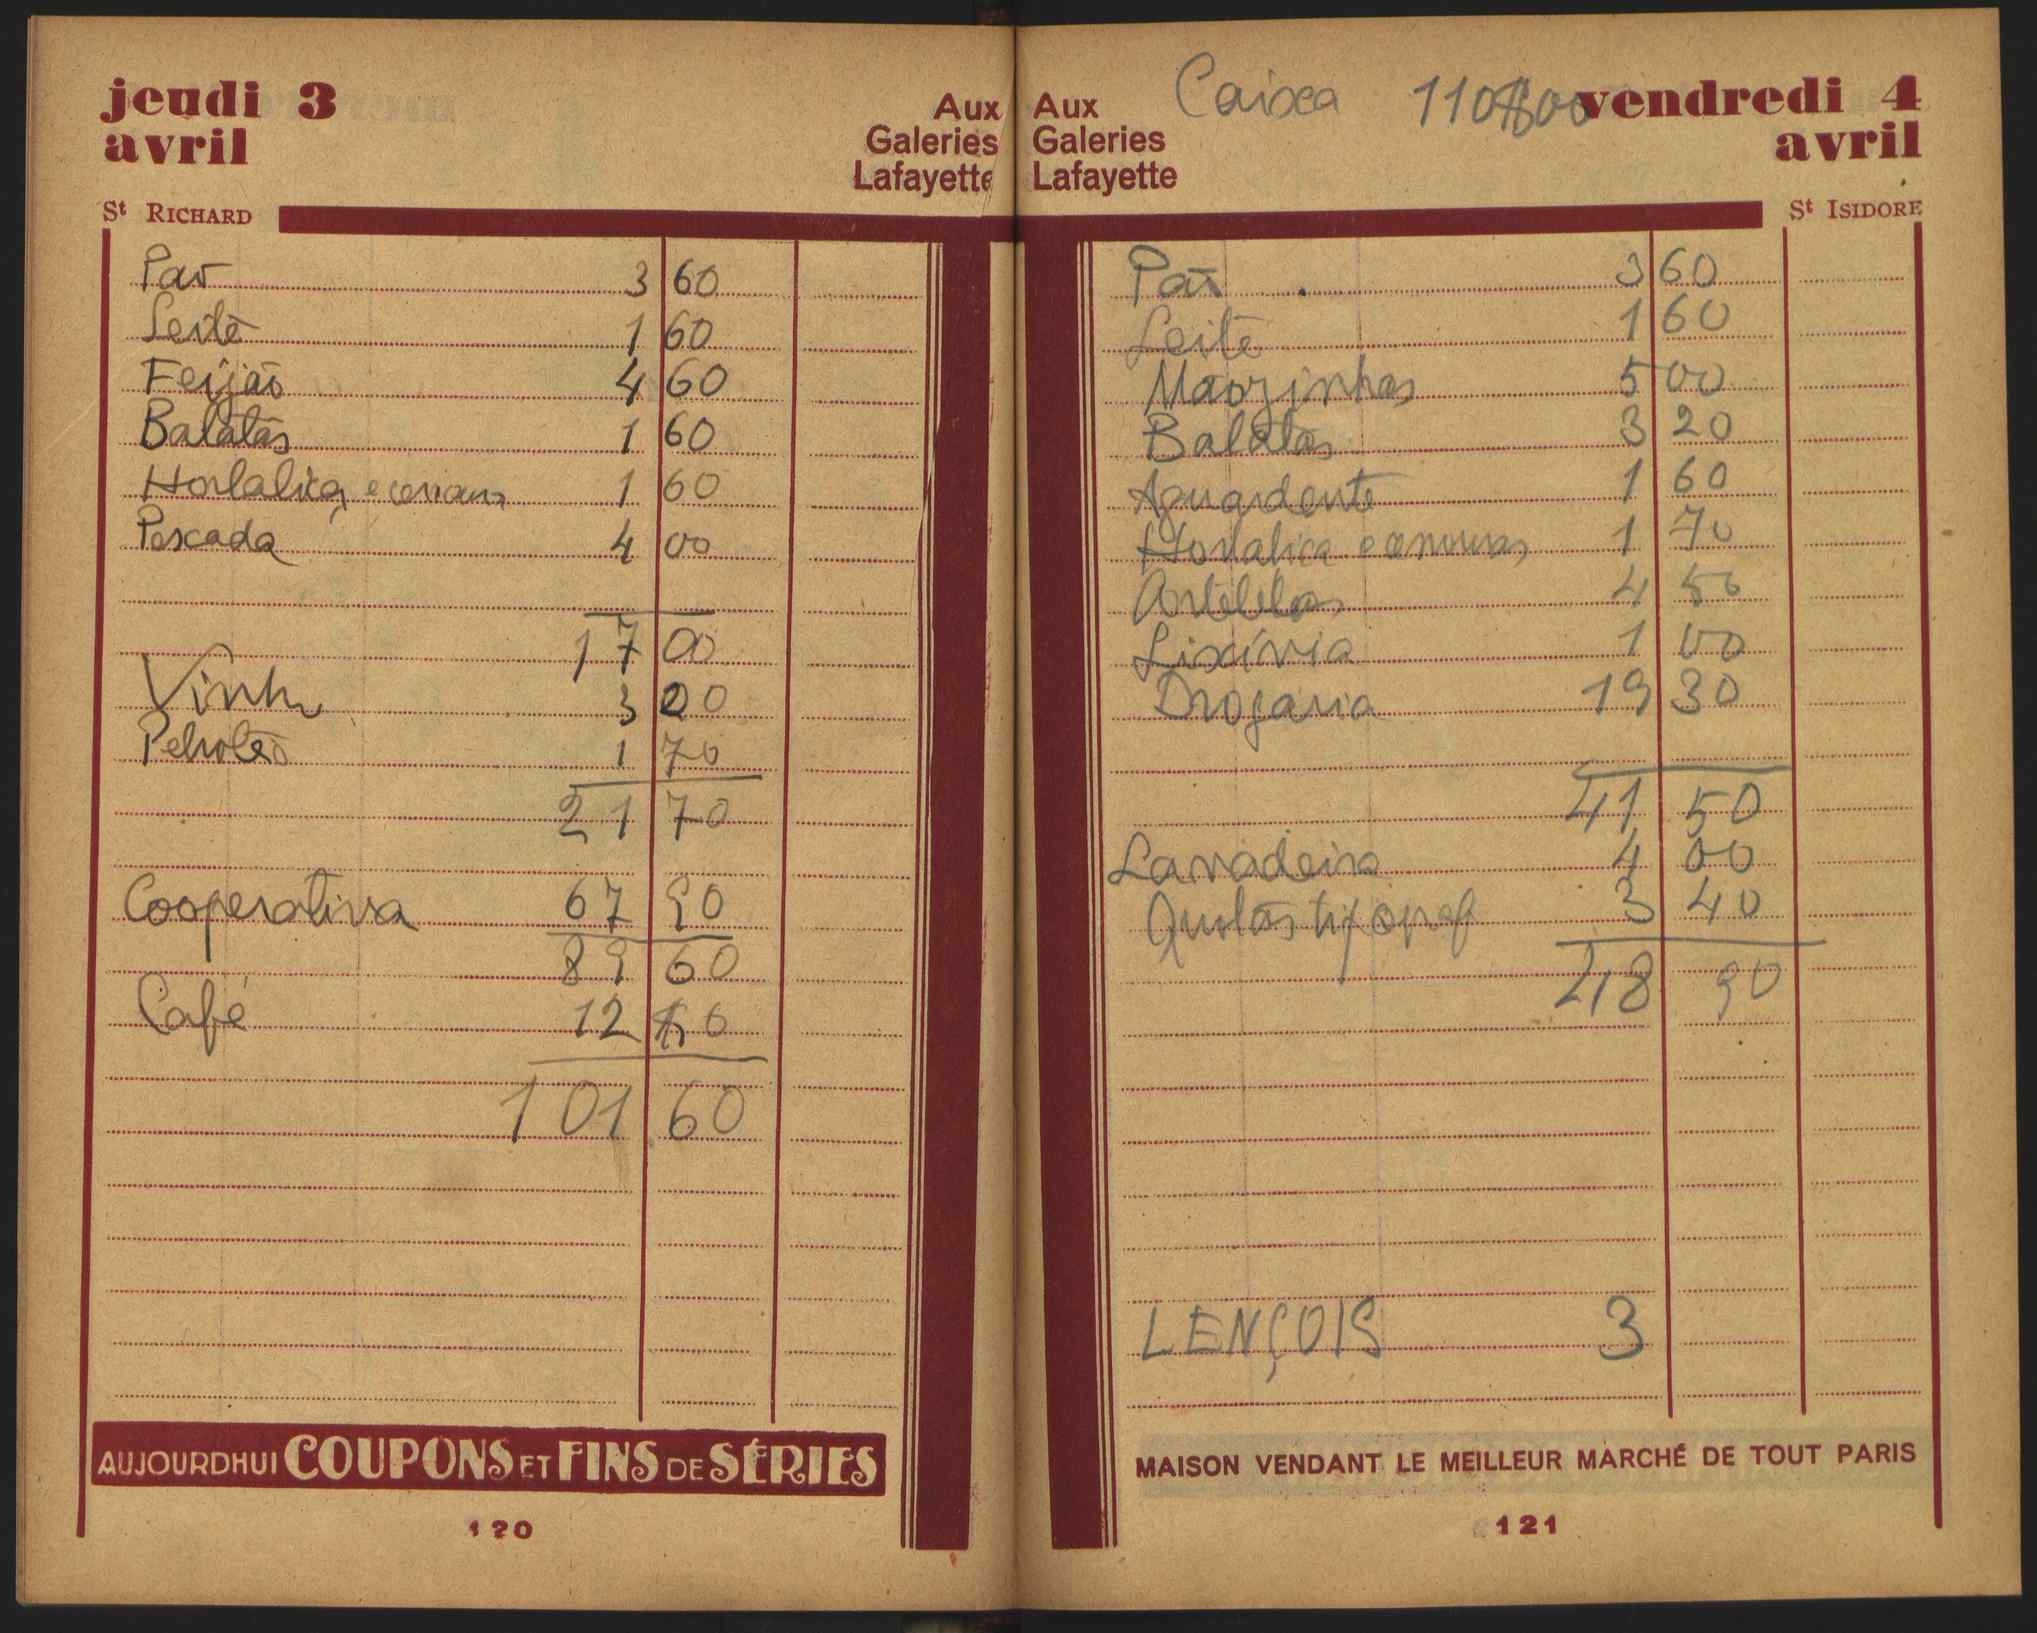 jeudi 3
avril
Aux
Galeries
Lafayette
St RICHARD
Pão 3 60
Leite 1 60
Feijão 4 60
Batatas 1 60
Hortaliça e 1 60
Pescada 4 00
17 00
Vinho 3 00
Petroleo 1 70
21 70
Cooperativa 67 90
89 60
Café 12 00
101 60
AUJOURDHUI COUPONS ET FINS DE SÉRIES
120
Caixa 110$00
vendredi 4
avril
Aux
Galeries
Lafayette
St ISIDORE
Pão 3 60
Leite 1 60
Mãozinhas 5 00
Batatas 3 20
Aguardente 1 60
Hortaliça e cenouras 1 70
4 50
Lixívia 1 00
Drogaria 19 30
41 50
Lavadeira 4 00
Quotas 3 40
48 90
LENÇOIS 3
MAISON VENDANT LE MEILLEUR MARCHÉ DE TOUT PARIS
121